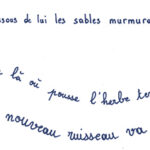 de lui les sables murmure
là où pousse l'herbe
nouveau ruisseau va